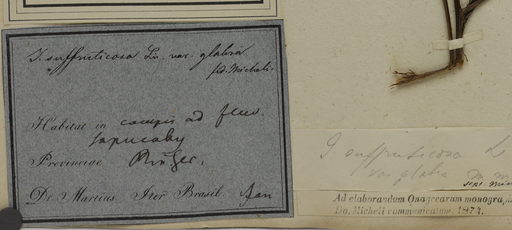 J. suffruticosa Lin. var. glabra
fid. Micheli.
Habitat in campis ad fluv.
Sapucahy
Provinciae
Dr. Martius Iter Brasil. Jan
J suffruticosa L
var glabra m m
Ad elaborandum Onagrearum monogra
Do. Micheli communicatum. 1874.